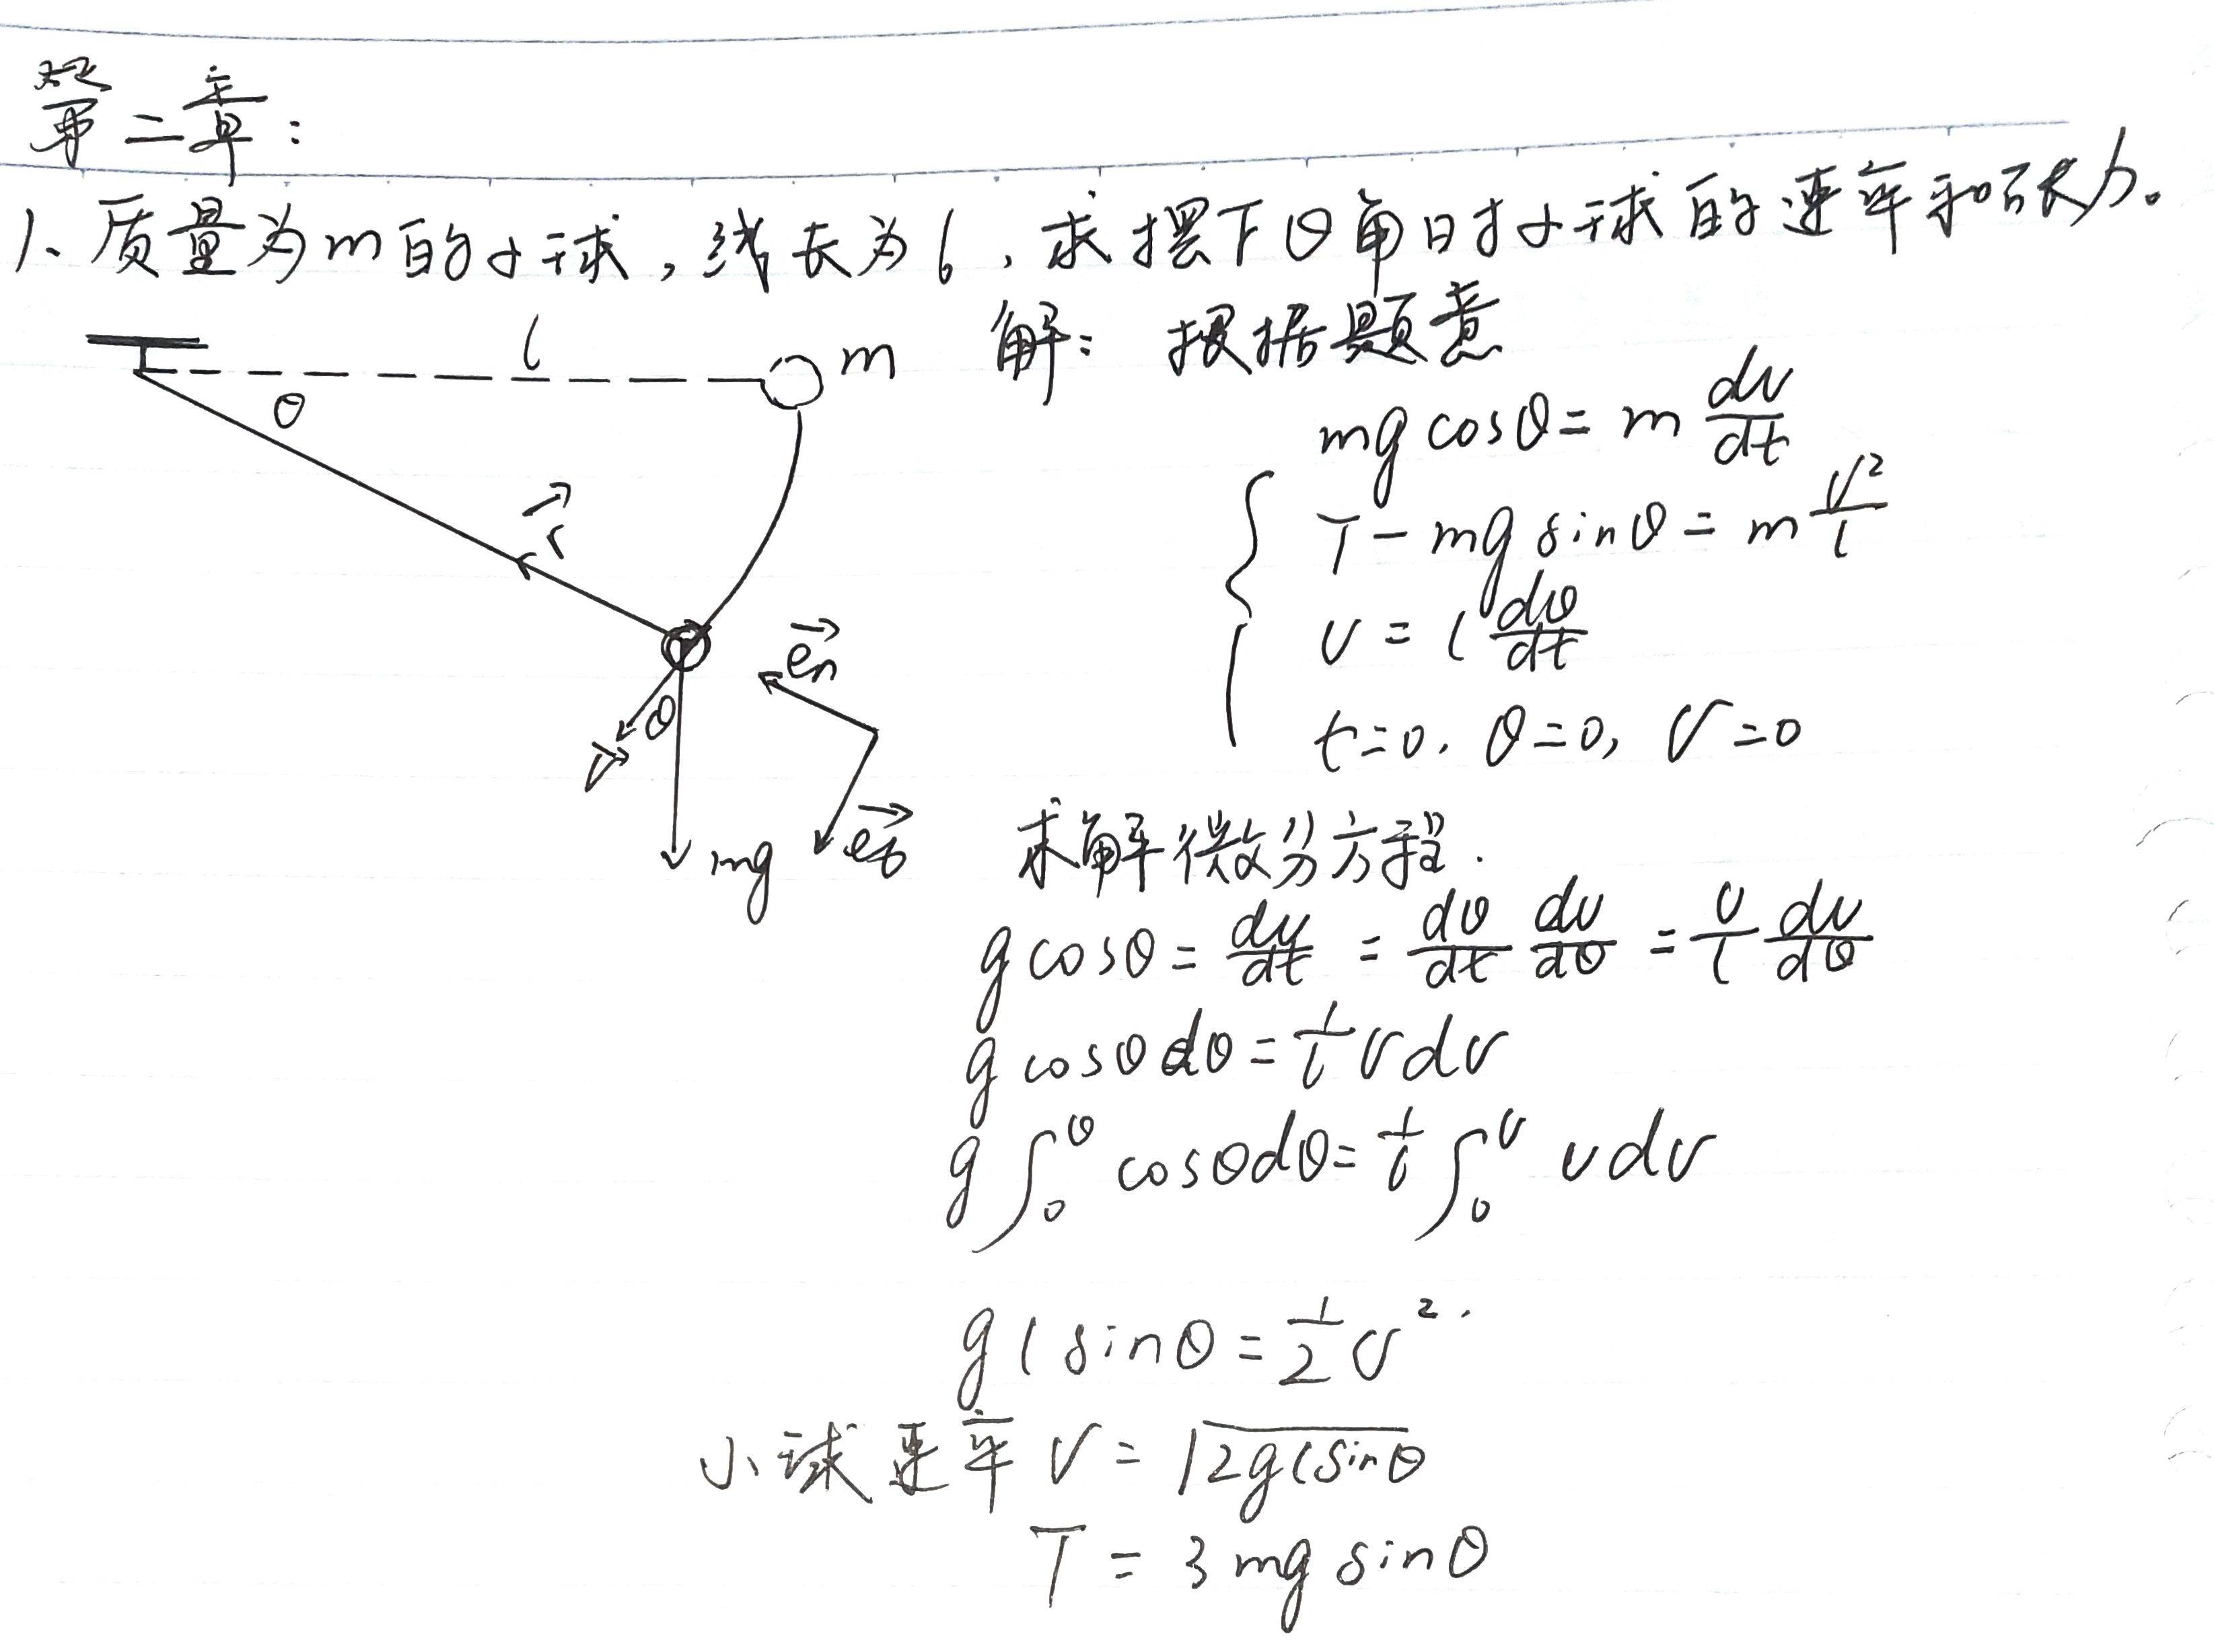 第二章:
1、质量为m的小球,线长为l,求摆下θ角时小球的速率和张力。
l
m
解: 根据题意
θ
mg cosθ = m dv/dt
T - mg sinθ = m v²/l
v = l dθ/dt
t=0, θ=0, v=0
en
θ
v
mg
et
求解微分方程.
g cosθ = dv/dt = dθ/dt dv/dθ = v/l dv/dθ
g cosθ dθ = 1/l v dv
g ∫₀^θ cosθ dθ = 1/l ∫₀^v v dv
g l sinθ = 1/2 v².
小球速率 v = √2gl sinθ
T = 3mg sinθ